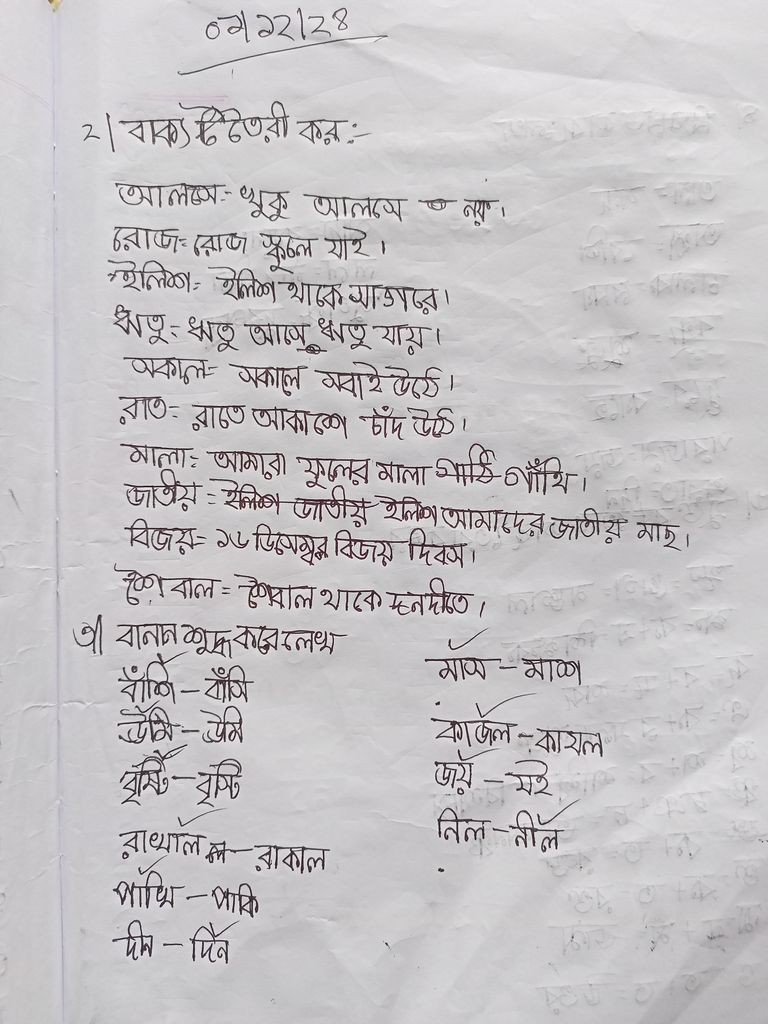 ০৭/১২/২৪
২। বাক্য তৈরী কর:-
আলসে = খুকু আলসে নয়।
রোজ = রোজ স্কুলে যাই।
ইলিশ = ইলিশ থাকে সাগরে।
ঋতু = ঋতু আসে ঋতু যায়।
সকাল = সকালে সবাই উঠে।
রাত = রাতে আকাশে চাঁদ উঠে।
মালা = আমারা ফুলের মালা গাঁথি।
জাতীয় = ইলিশ আমাদের জাতীয় মাছ।
বিজয় = ১৬ ডিসেম্বর বিজয় দিবস।
শৈবাল = শৈবাল থাকে নদীতে।
৩। বানান শুদ্ধ করে লেখ
বাঁশি - বাঁসি
ঊর্মি - উর্মি
বৃষ্টি - বৃস্টি
রাখাল - রাকাল
পাখি - পাকি
দীন - দিন
মাস - মাশ
কাজল - কাযল
জয় - যই
নিল - নীল